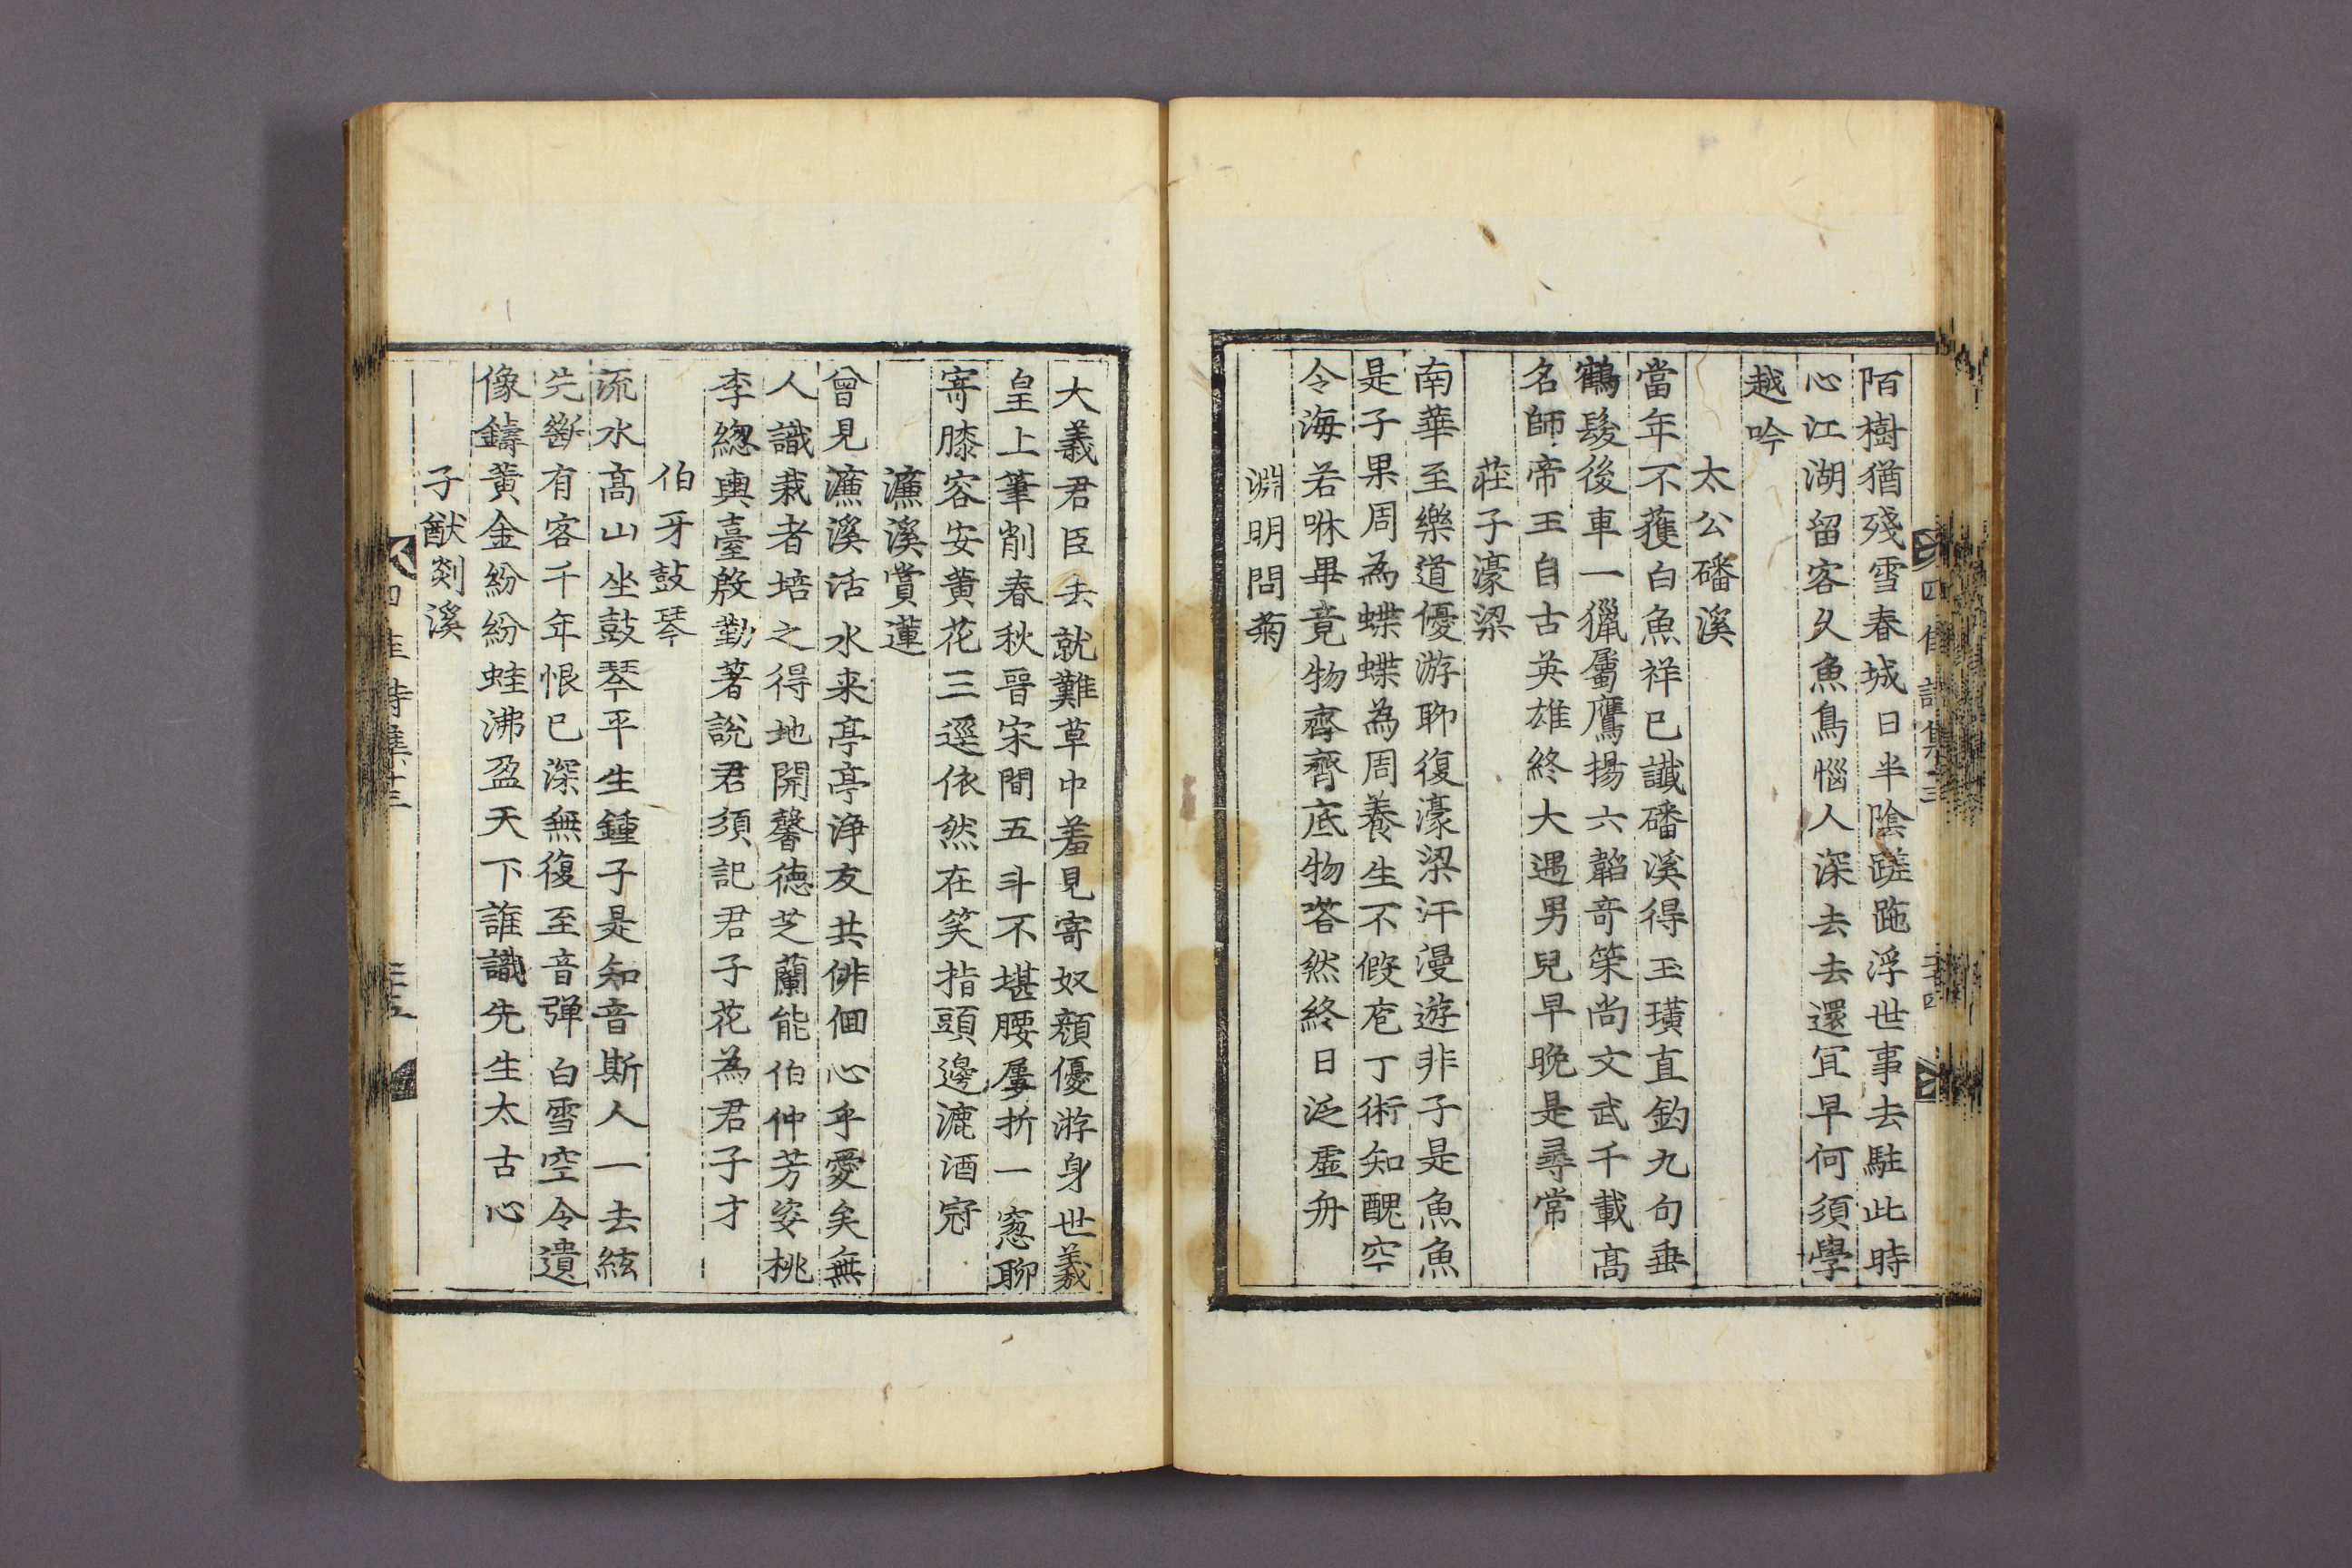 陌樹猶殘雪春城日半陰蹉跎浮世事去駐此時
心江湖留客久魚鳥惱人深去去還宜早何須學
越吟
太公磻溪
當年不獲白魚祥已讖磻溪得玉璜直釣九句垂
鶴髮後車一獵屬鷹揚六韜奇策尚文武千載高
名師帝王自古英雄終大遇男兒早晚是尋常
莊子濠梁
南華至樂道優游聊復濠梁汗漫遊非子是魚魚
是子果周為蝶蝶為周養生不假庖丁術知醜空
令海若咻畢竟物齊齊底物嗒然終日泛虛舟
淵明問菊
大義君臣去就難草中羞見寄奴顏優游身世羲
皇上筆削春秋晉宋間五斗不堪腰屢折一窓聊
寄膝容安黃花三逕依然在笑指頭邊漉酒冠
濂溪賞蓮
曾見濂溪活水来亭亭淨友共俳佪心乎愛矣無
人識栽者培之得地開馨德芝蘭能伯仲芳姿桃
李緫輿臺慇勤著說君須記君子花為君子才
伯牙鼓琴
流水高山坐鼓琴平生鍾子是知音斯人一去絃
先斷有客千年恨已深無復至音弹白雪空令遺
像鑄黃金紛紛蛙沸盈天下誰識先生太古心
子猷剡溪